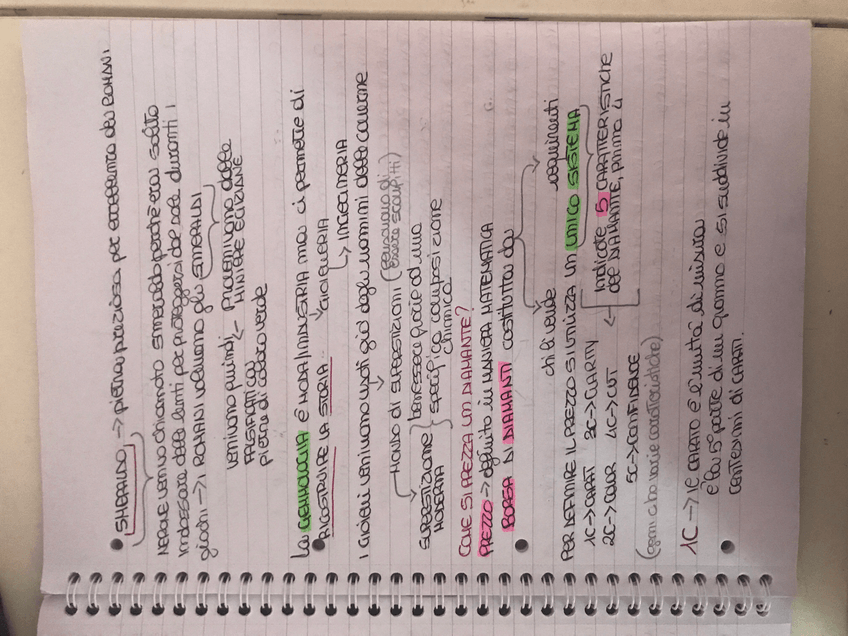 SMERALDO → pietra preziosa per eccellenza dei ROMANI
NERONE veniva chiamato smeraldo perché era solito
indossare delle lenti per proteggersi dal sole durante i
giochi → I ROMANI volevano gli SMERALDI
venivano quindi ← PROVENIVANO dalle
FALSIFICATI CON MINIERE EGIZIANE
pietre di colore verde
La GEMMOLOGIA È MODA/INDUSTRIA ma ci permette di
RICOSTRUIRE LA STORIA → GIOIELLERIA
→ INGEGNERIA
I GIOIELLI venivano usati già dagli uomini delle caverne
→ MONDO DI SUPERSTIZIONI (pensavano di
essere scolpiti)
SUPERSTIZIONE benessere grazie ad una
MODERNA specifica composizione
chimica
COME SI PREZZA UN DIAMANTE?
PREZZO → definito in MANIERA MATEMATICA
BORSA DI DIAMANTI costituita da
chi li vende acquirenti
PER DEFINIRE IL PREZZO SI UTILIZZA UN UNICO SISTEMA
1C → CARAT 3C → CLARITY indicate 5 CARATTERISTICHE
2C → COLOR 4C → CUT ← del DIAMANTE, prima 4
5C → CONFIDENCE
(ogni c ha varie caratteristiche)
1C → IL CARATO è l'unità di misura
è la 5ª parte di un grammo e si suddivide in
CENTESIMI DI CARATI.